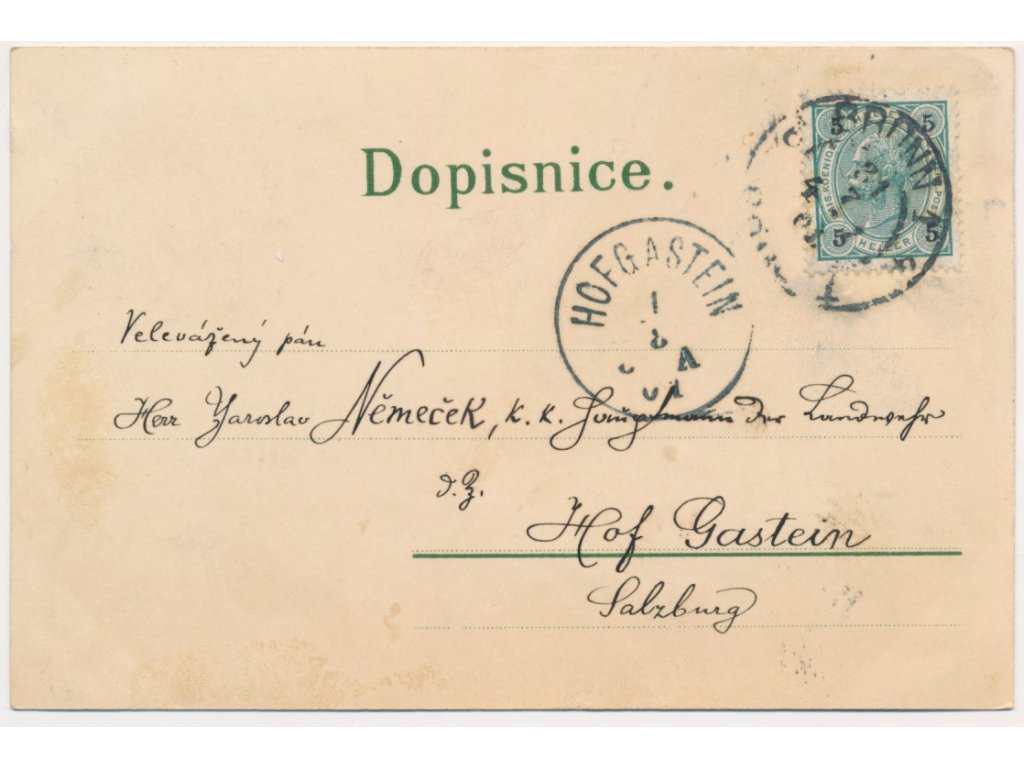 Dopisnice.
5 5
5 HELLER 5
BRÜNN
HOFGASTEIN
1
8
A
01
Velevážený pán
Herr Yaroslav Němeček, K. K. Hauptmann der Landwehr
d. Z.
Hof Gastein
Salzburg